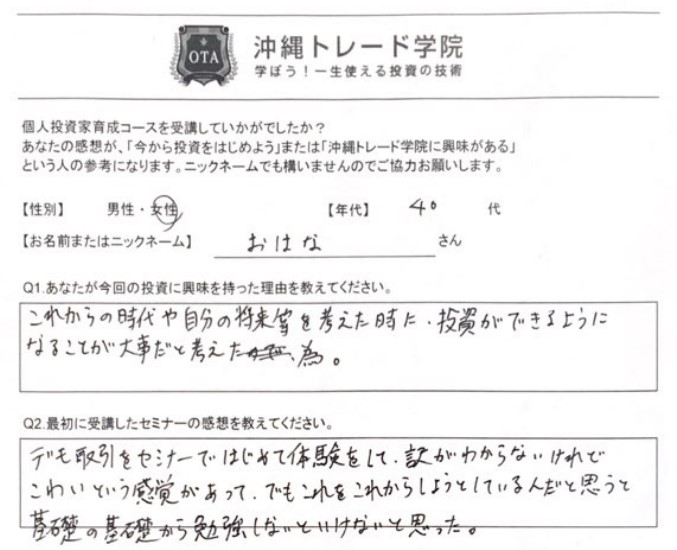 OTA
沖縄トレード学院
学ぼう！一生使える投資の技術
個人投資家育成コースを受講していかがでしたか？
あなたの感想が、「今から投資をはじめよう」または「沖縄トレード学院に興味がある」
という人の参考になります。ニックネームでも構いませんのでご協力お願いします。
【性別】 男性・女性 【年代】 40 代
【お名前またはニックネーム】 おはな さん
Q1.あなたが今回の投資に興味を持った理由を教えてください。
これからの時代や自分の将来等を考えた時に、投資ができるように
なることが大事だと考えた為。
Q2.最初に受講したセミナーの感想を教えてください。
デモ取引をセミナーではじめて体験をして、訳がわからないけれど
こわいという感覚があって、でもこれをこれからしようとしているんだと思うと
基礎の基礎から勉強しないといけないと思った。